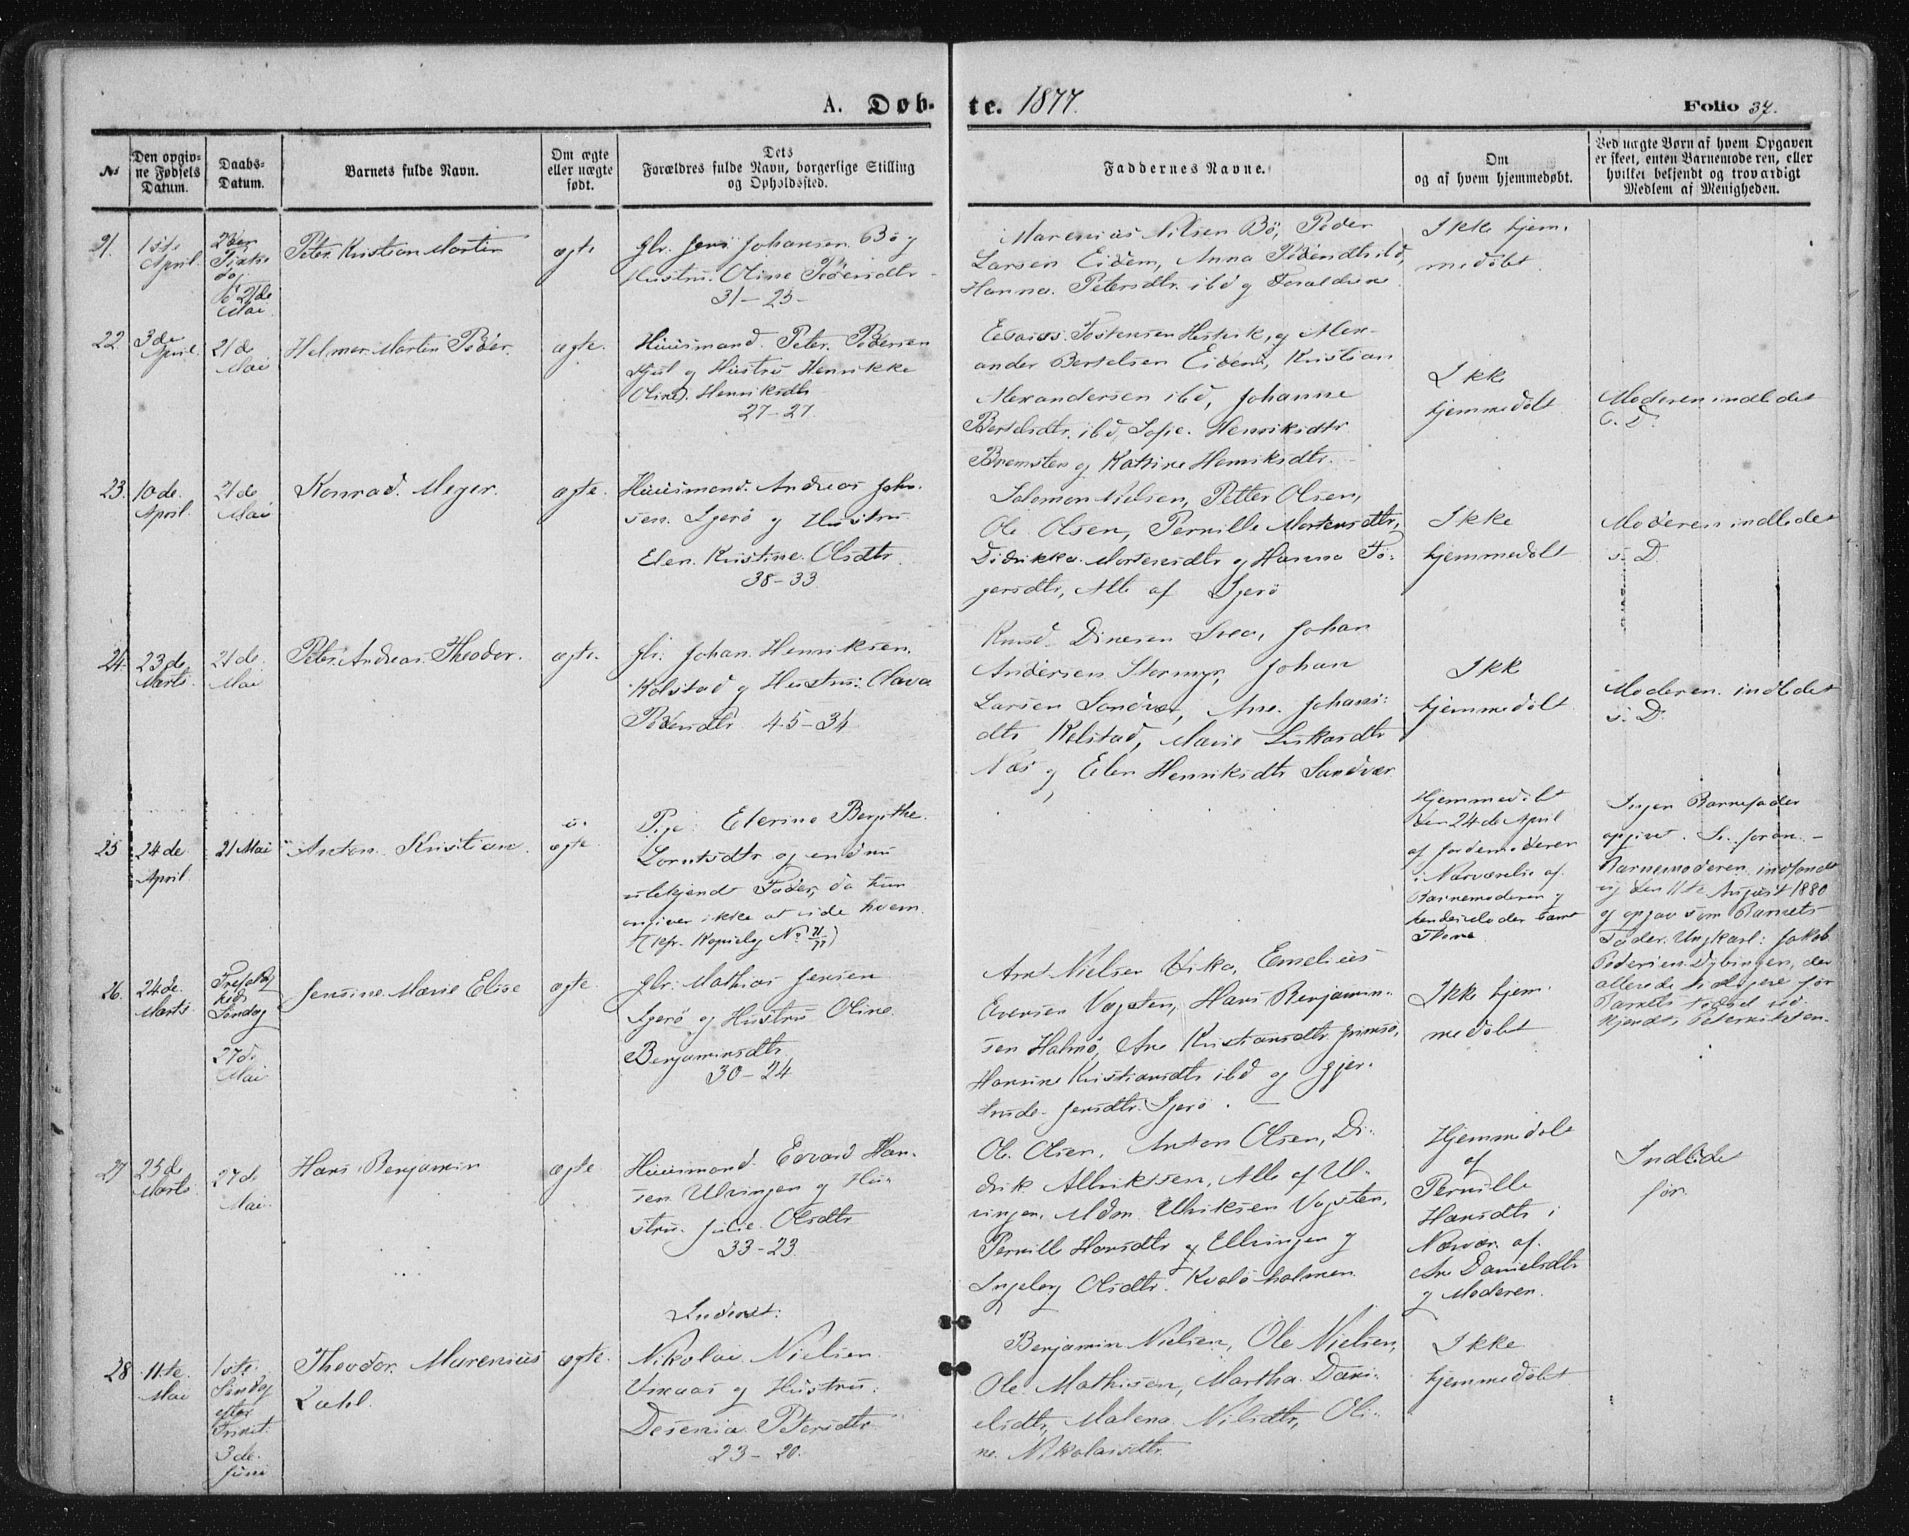 A. Døb- te. 1877. Folio 37.
No
Den opgiv-
ne Fødsels
Datum.
Daabs-
Datum.
Barnets fulde Navn.
Om ægte
eller uægte
født.
Dets
Forældres fulde Navn, borgerlige Stilling
og Opholdssted.
Faddernes Navne.
Om
og af hvem hjemmedøbt.
Ved uægte Børn af hvem Opgaven
er skeet, enten Barnemoderen, eller
hvilket bekjendt og troværdigt
Medlem af Menigheden.
21.
1ste
April
2den
Pintse
dag
d 21de
Mai
Peter Kristian Martin
ægte
Gbr. Jens Johansen Bø og
Hustru Oline Pedersdtr
31-25-
Marenius Nilsen Bø, Peder
Larsen Eidem, Anna Pedersdtr ibd,
Hanna Petersdtr. ibd og Forældrene
Ikke hjem-
medøbt.
22.
3de
April.
21de
Mai
Helmer Martin Peder.
ægte.
Huusmand Peter Pedersen
og Hustru Henrikke
Oline Henriksdtr
27-27.
Esaias Tostensen og Alex-
ander Bertelsen Eidem, Kristian
Alexandersen ibd, Johanne
Bertelsdtr. ibd, Sofie Henriksdtr
Bremsten og Katrine Henriksdtr.
Ikke
hjemmedøbt
Moderen indledet
s. D.
23.
10de.
April.
21de
Mai
Konrad Meyer.
ægte.
Huusmand. Andreas John-
sen. Igerø og Hustru
Elen Kristine Olsdtr.
38-33
Salomon Nielsen, Petter Olsen,
Ole Olsen, Pernille Mortensdtr,
Didrikka Mortensdtr og Hanna To-
gersdtr, Alle af Igerø
Ikke
hjemmedøbt
Moderen indledet
s. D.
24.
23de
Marts.
21de
Mai
Peter Andreas Theodor.
ægte.
Gbr. Johan Henriksen.
Kolstad og Hustru Olava
Pedersdtr 45-34
Knud Dinesen, Johan
Andersen Stormyr, Johan
Larsen Sandvær, Ane Johans-
dtr Kolstad, Marie
Næs og Elen Henriksdtr Sandvær
Ikk
hjemmedøbt
Moderen indledet
s. D.
25
24de
April
21 Mai
Anton Kristian.
u-
ægte.
Pige Elerine Bergithe
Lorntsdtr og endnu
ubekjendt Fader, da hun
angiver ikke at vide hvem.
(cfr. Kopiebog No 71/77)
Hjemmedøbt
den 24de April
af Jordemoderen
i Nærværelse af
Barnemoderen og
hendes Moder samt
Ingen Barnefader
opgivet. Se foran.-
Barnemoderen indfandt
sig den 11te August 1880
og opgav som Barnets
Fader Ungkarl Jakob
Pedersen Dybingen, der
allerede tidligere før
Barnets Fødsel ved-
26.
24de.
Marts
Trefoldig
heds
Søndag
27de
Mai
Jensine Marie Elise
ægte.
Gbr. Mathias Jensen
Igerø og Hustru Oline
Benjaminsdtr
30-24
Arn Nielsen Vika, Emelius
Evensen Vægsten, Hans Benjamin-
sen Halmø, Ane Kristiansdtr
Hansine Kristiansdtr ibd og Gjer-
trude Jensdtr. Igerø.
Ikke hjem-
medøbt
27
25de
Marts.
27de
Mai.
Hans Benjamin
ægte
Huusmand Edvard Han-
sen Ulvingen og Hu-
stru. Julie Olsdtr
33-23.
Ole Olsen, Anton Olsen, Di-
drik Allriksen, Alle af Ul-
vingen. Ulriksen Vægsten,
Pernille Hansdtr og Ellvingen og
Ingeborg Olsdtr. Kvaløholmen
Hjemmedøbt
af
Pernille
Hansdtr i
Nærvær. af
Ane Danielsdtr
og Moderen.
Indledet
før.
28
11te.
Mai
1ste.
Søndag
efter
Trinit:
3de.
Juni
Theodor Marenius
Zahl.
ægte.
Inderst:
Nikolai Nielsen
og Hustru:
Desenia Petersdtr
23-20.
Benjamin Nielsen, Ole Nielsen,
Ole Mathisen, Martha Dani-
elsdtr, Malena Nilsdtr, Oli-
ne Nikolaisdtr.
Ikke
hjemmedøbt.